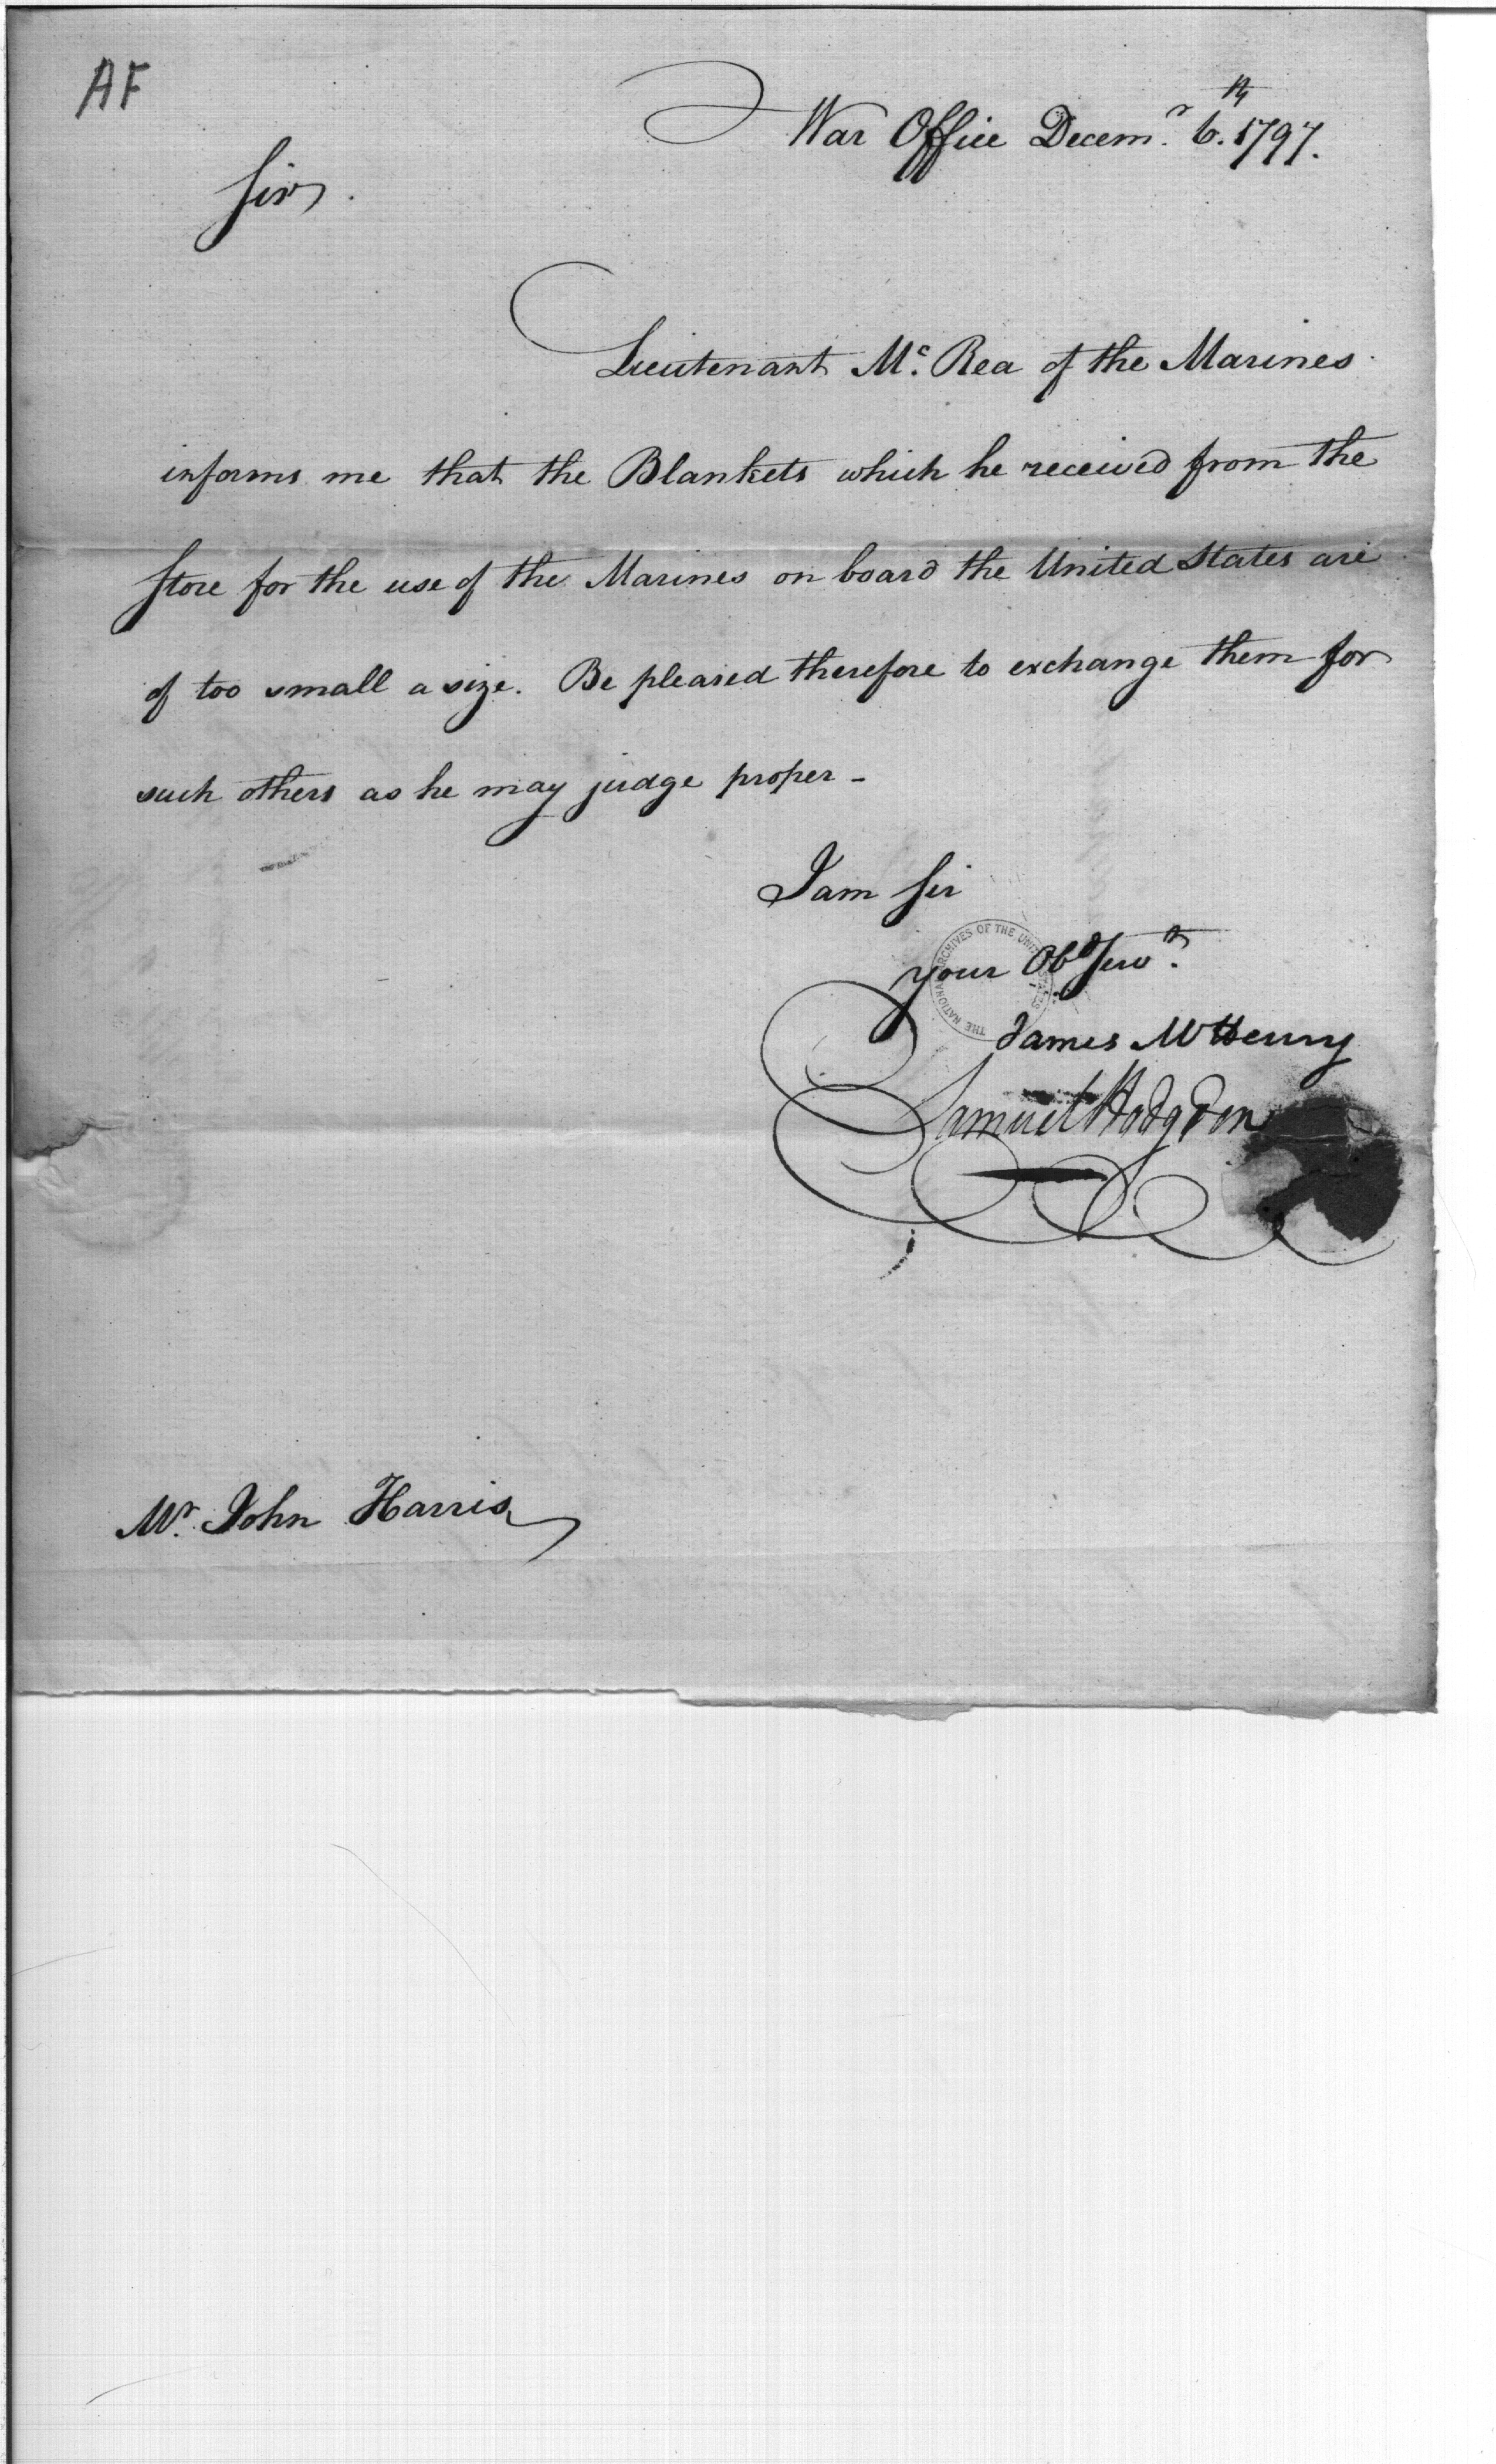 AF
War Office Decemr. 6th. 1797.
Sir.
Lieutenant Mc. Rea of the Marines
informs me that the Blankets which he received from the
Store for the use of the Marines on board the United States are
of too small a size. Be pleased therefore to exchange them for
such others as he may judge proper -
I am Sir
your Obd Servt.
THE NATIONAL ARCHIVES OF THE UNITED STATES
James McHenry
Samuel Hodgdon
Mr. John Harris